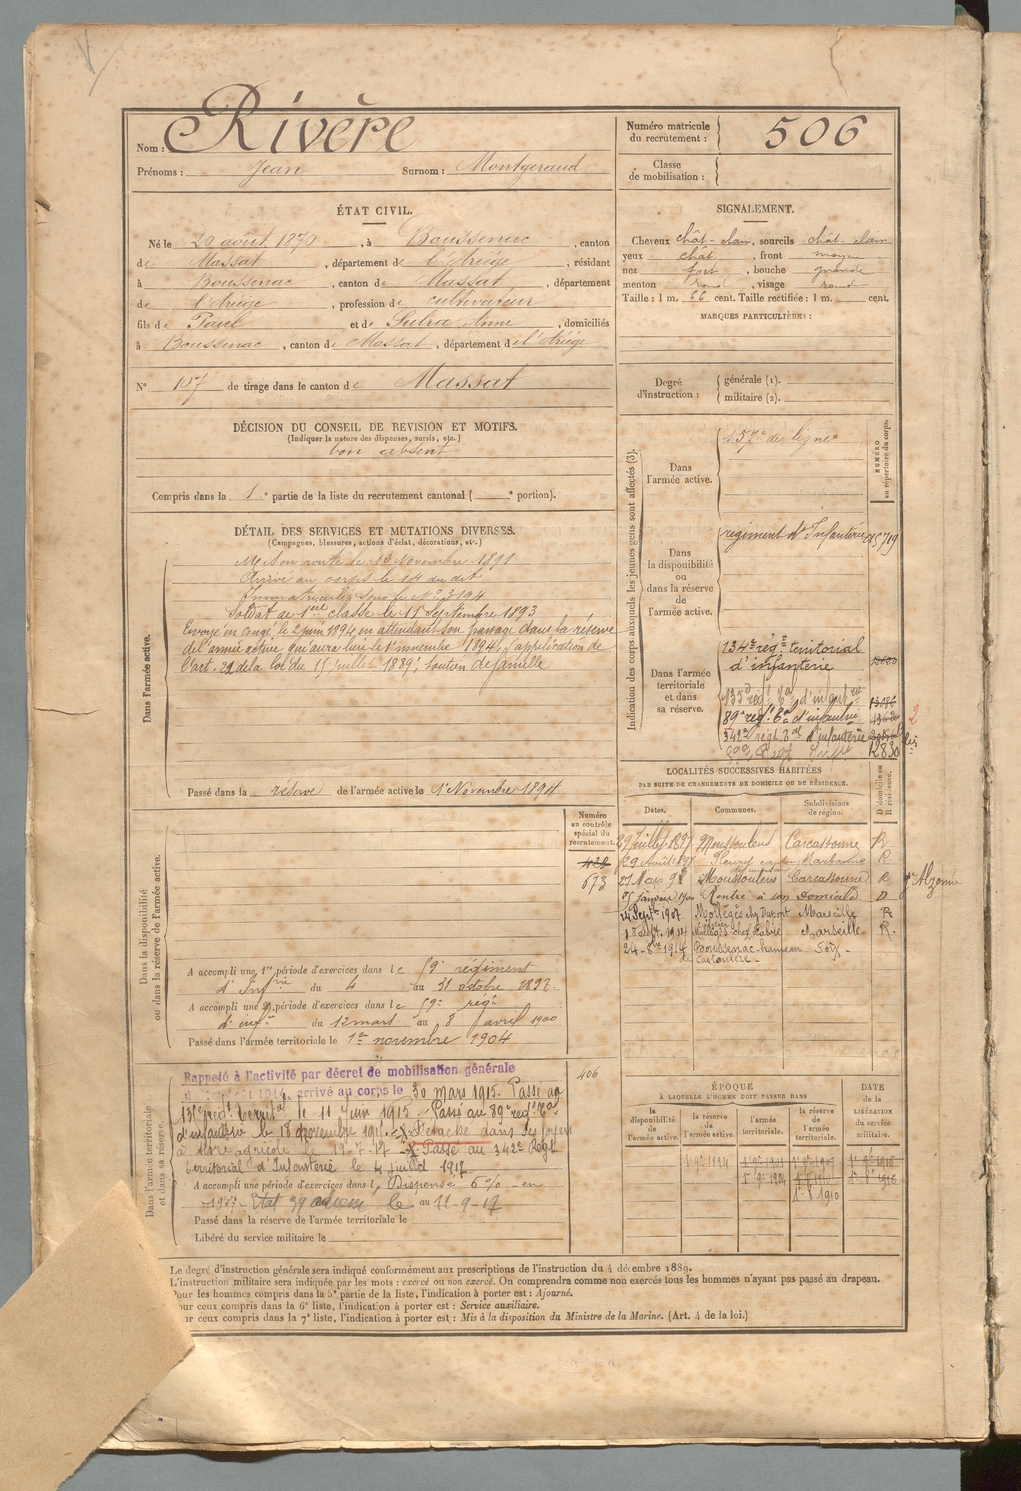 Nom : Rivère
Prénoms : Jean Surnom : Montgeraud
Numéro matricule du recrutement : 506
Classe de mobilisation :
ÉTAT CIVIL.
Né le 20 août 1870, à Boussenac, canton
de Massat, département de l'Ariège, résidant
à Boussenac, canton de Massat, département
de l'Ariège, profession de cultivateur
fils de Paul et de Sutra Anne, domiciliés
à Boussenac, canton de Massat, département de l'Ariège
N° 107 de tirage dans le canton de Massat
SIGNALEMENT.
Cheveux chât-clair, sourcils chât-clair
yeux chât, front moyen
nez fort, bouche grande
menton rond, visage rond
Taille : 1 m. 66 cent. Taille rectifiée : 1 m. cent.
MARQUES PARTICULIÈRES :
Degré d'instruction : générale (1).
militaire (2).
DÉCISION DU CONSEIL DE REVISION ET MOTIFS.
(Indiquer la nature des dispenses, sursis, etc.)
bon absent
Compris dans la 1e partie de la liste du recrutement cantonal ( e portion).
DÉTAIL DES SERVICES ET MUTATIONS DIVERSES.
(Campagnes, blessures, actions d'éclat, décorations, etc.)
Dans l'armée active.
Mis en route le 13 Novembre 1891
Arrivé au corps le 14 du dit
Immatriculé sous le N° 3194
Soldat de 1ère classe le 11 Septembre 1893
Envoyé en congé le 2 juin 1894 en attendant son passage dans la réserve
de l'armée active, qui aura lieu le 1er novembre 1894, (application de
l'art. 22 de la loi du 15 juillet 1889), soutien de famille
Passé dans la réserve de l'armée active le 1er Novembre 1894
Indication des corps auxquels les jeunes gens sont affectés (3).
NUMÉRO au répertoire du corps.
Dans l'armée active.
157e de ligne
Dans la disponibilité ou dans la réserve de l'armée active.
régiment d'Infanterie
Dans l'armée territoriale et dans sa réserve.
134e régnt territorial
d'infanterie
135e régt Tal d'infantrie
89e régt Tal d'infantrie
342e régt Tal d'infanterie
12830
LOCALITÉS SUCCESSIVES HABITÉES
PAR SUITE DE CHANGEMENTS DE DOMICILE OU DE RÉSIDENCE.
Dates. Communes. Subdivisions de région. D domicile ou R résidence.
29 Juillet 1897 Moussoulens Carcassonne R
29 Août 1897 Fleury canton Narbonne R
27 Mars 98 Moussoulens Carcassonne R Alzonne
janvier 1900 Rentré à son Domicile D
14 Septbre 1907 Mollégès chez Dupont Marseille R
18 Sept. 1914 Mollégès chez Fabre Marseille R.
24-8bre 1914 Boussenac-hameau Foix
de
Dans la disponibilité ou dans la réserve de l'armée active.
Numéro au contrôle spécial du recrutement.
673
A accompli une 1re période d'exercices dans le 59e régiment
d'Infrie du 4 au 31 octobre 1897.
A accompli une 2e période d'exercices dans le 59e régt
d'infie du 12 mars au 8 avril 1900
Passé dans l'armée territoriale le 1er novembre 1904
Dans l'armée territoriale et dans sa réserve.
406
Rappelé à l'activité par décret de mobilisation générale
arrivé au corps le 30 mars 1915. Passé au
territal le 11 Juin 1915. Passé au 89e régt Tal
d'infanterie le 18 novembre 1915. Détaché dans ses foyers
à titre agricole le 19-7-17 Passé au 342e Régt
territorial d'Infanterie le 4 juillet 1917.
A accompli une période d'exercices dans l Dispensé 6% en
Etat 39 au 11-9-17
Passé dans la réserve de l'armée territoriale le
Libéré du service militaire le
ÉPOQUE
À LAQUELLE L'HOMME DOIT PASSER DANS
la disponibilité de l'armée active. la réserve de l'armée active. l'armée territoriale. la réserve de l'armée territoriale.
DATE de la LIBÉRATION du service militaire.
1er 9bre 1894
1er 8 1910
Le degré d'instruction générale sera indiqué conformément aux prescriptions de l'instruction du 4 décembre 1889.
L'instruction militaire sera indiquée par les mots : exercé ou non exercé. On comprendra comme non exercés tous les hommes n'ayant pas passé au drapeau.
Pour les hommes compris dans la 5e partie de la liste, l'indication à porter est : Ajourné.
ur ceux compris dans la 6e liste, l'indication à porter est : Service auxiliaire.
ur ceux compris dans la 7e liste, l'indication à porter est : Mis à la disposition du Ministre de la Marine. (Art. 4 de la loi.)